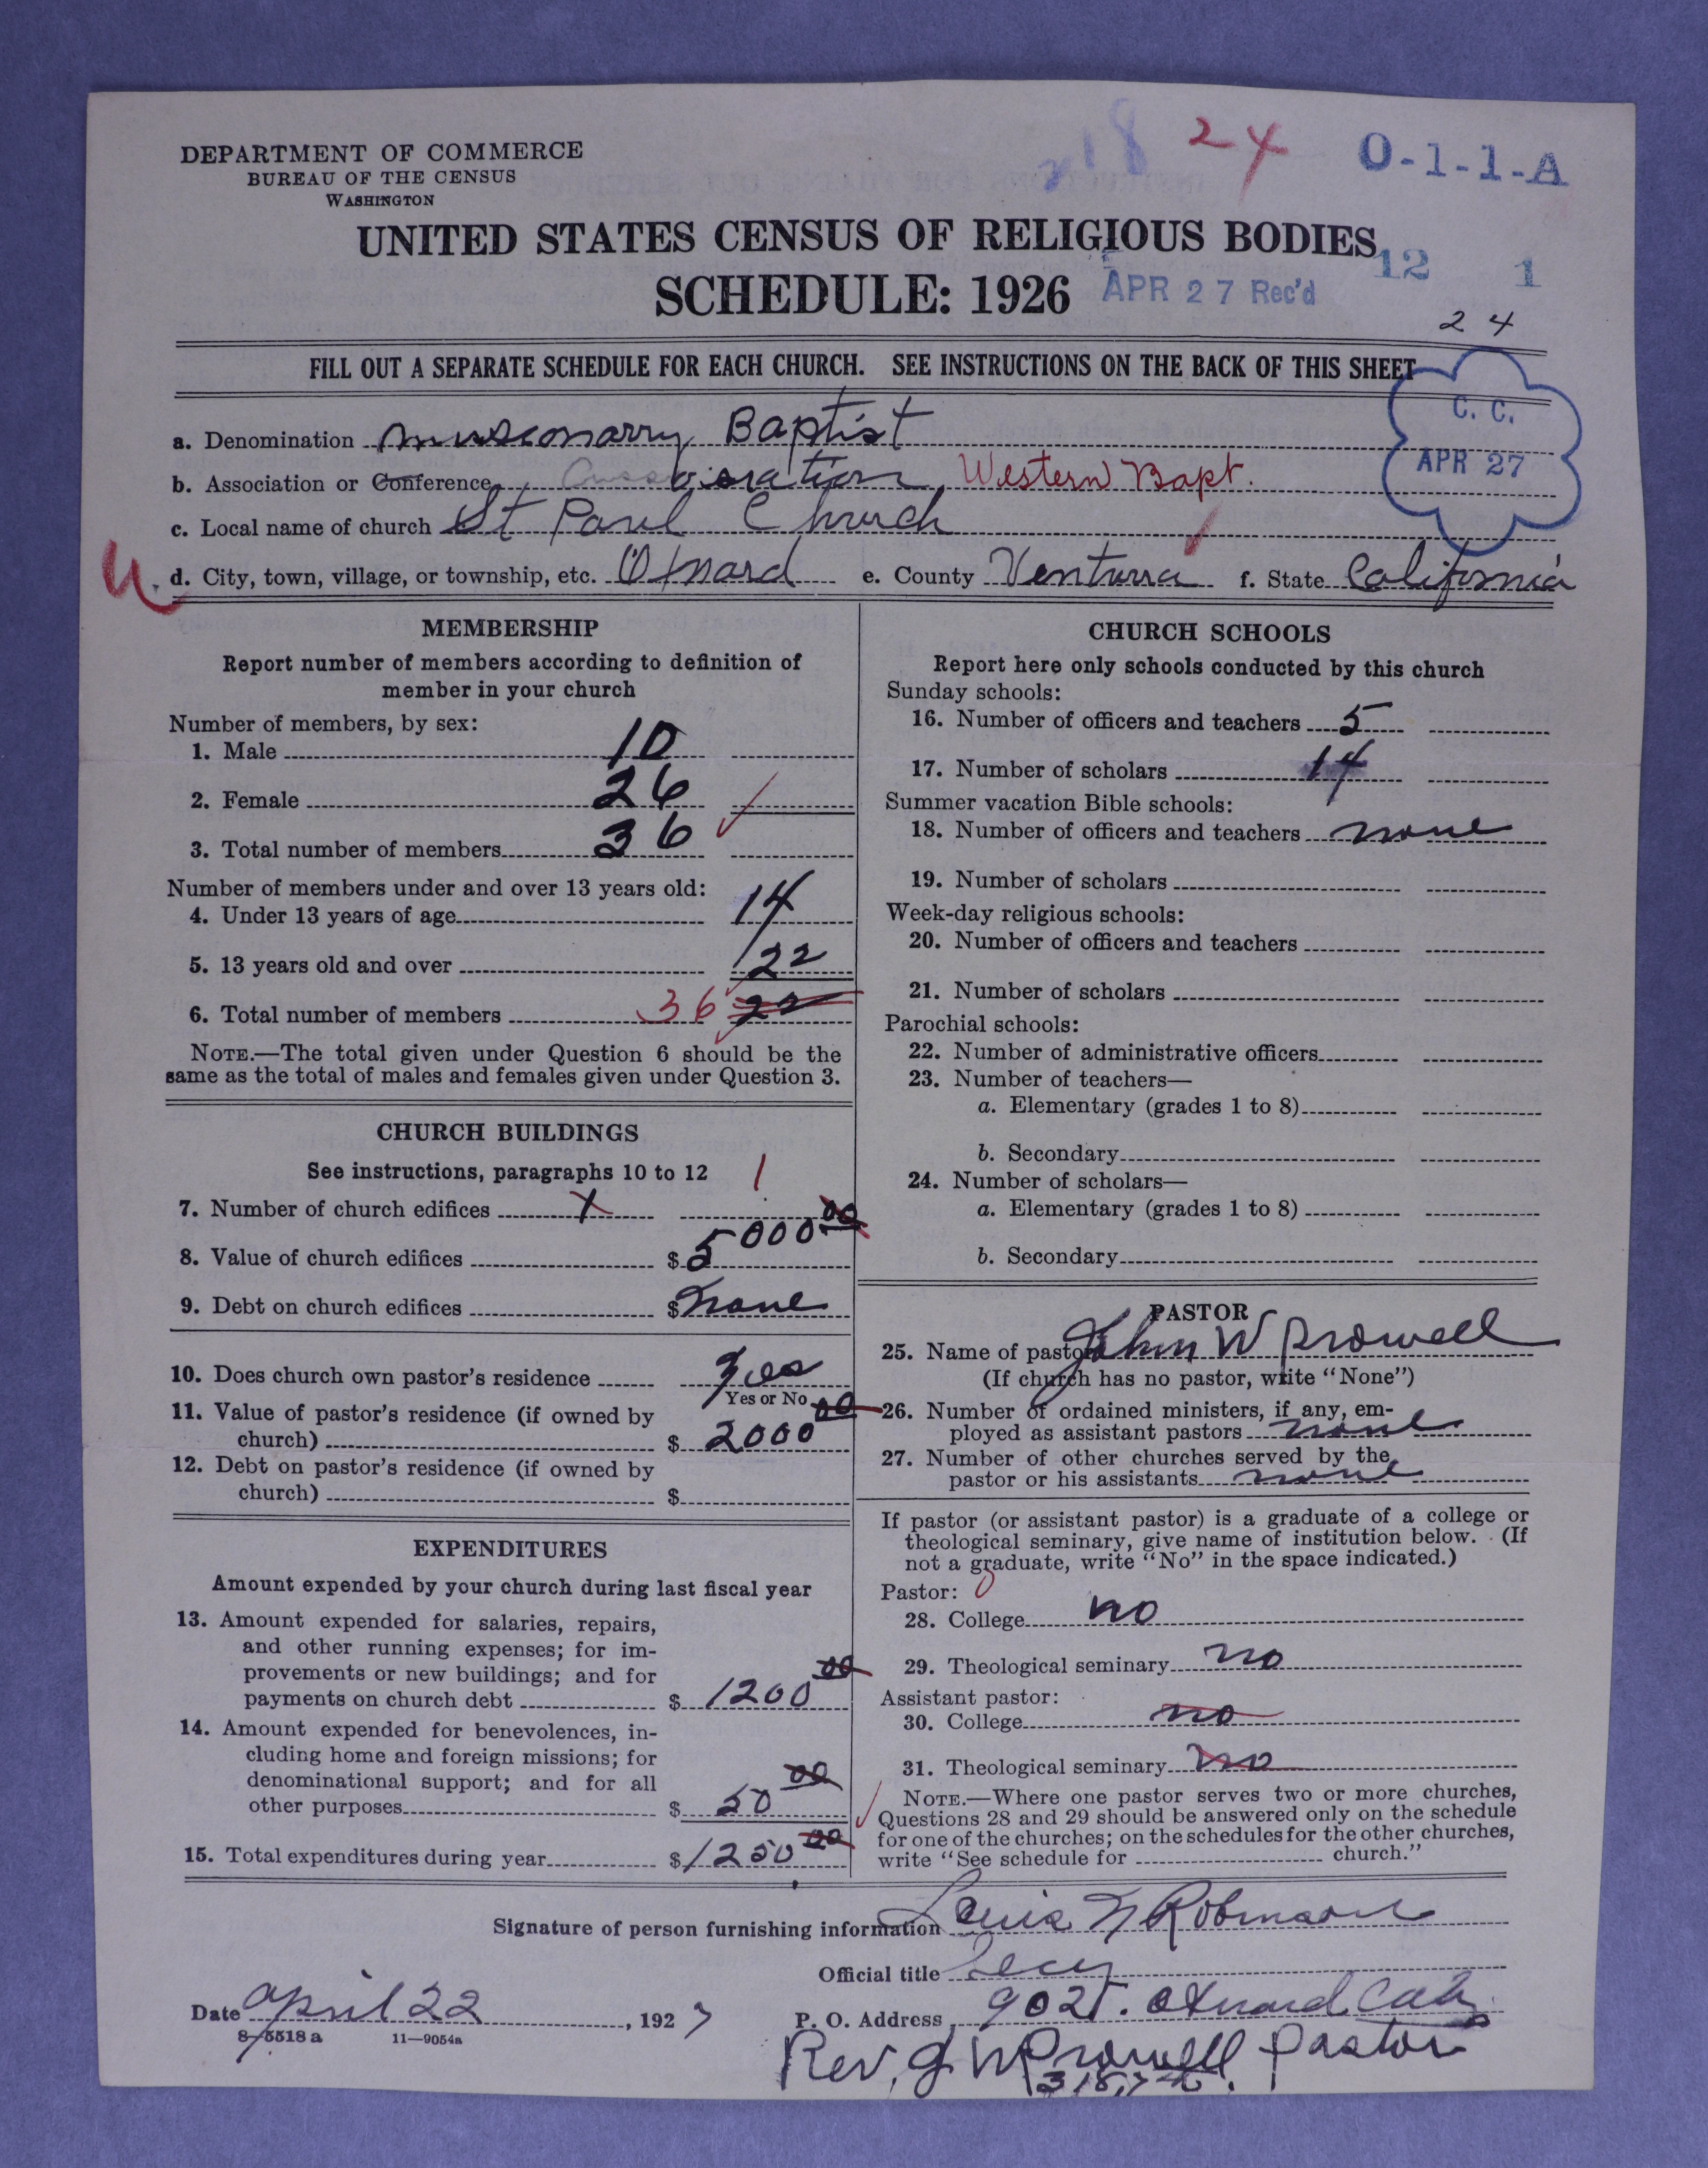 DEPARTMENT OF COMMERCE
BUREAU OF THE CENSUS
WASHINGTON
18 24 0-1-1-A
UNITED STATES CENSUS OF RELIGIOUS BODIES
SCHEDULE: 1926 APR 27 Rec'd 12 1
24
FILL OUT A SEPARATE SCHEDULE FOR EACH CHURCH. SEE INSTRUCTIONS ON THE BACK OF THIS SHEET
C. C.
APR 27
a. Denomination Baptist
b. Association or Conference Western Bapt.
c. Local name of church St Paul Church
d. City, town, village, or township, etc. Oxnard e. County Venturra f. State California
MEMBERSHIP
Report number of members according to definition of
member in your church
Number of members, by sex:
1. Male 10
2. Female 26
3. Total number of members 36
Number of members under and over 13 years old:
4. Under 13 years of age 14
5. 13 years old and over 22
6. Total number of members 36 22
NOTE.—The total given under Question 6 should be the
same as the total of males and females given under Question 3.
CHURCH BUILDINGS
See instructions, paragraphs 10 to 12
7. Number of church edifices 1
8. Value of church edifices $ 5000 00
9. Debt on church edifices $ none
10. Does church own pastor's residence yes
Yes or No
11. Value of pastor's residence (if owned by
church) $ 2000 00
12. Debt on pastor's residence (if owned by
church) $
EXPENDITURES
Amount expended by your church during last fiscal year
13. Amount expended for salaries, repairs,
and other running expenses; for im-
provements or new buildings; and for
payments on church debt $ 1200 00
14. Amount expended for benevolences, in-
cluding home and foreign missions; for
denominational support; and for all
other purposes $ 50 00
15. Total expenditures during year $ 1250 00
CHURCH SCHOOLS
Report here only schools conducted by this church
Sunday schools:
16. Number of officers and teachers 5
17. Number of scholars 14
Summer vacation Bible schools:
18. Number of officers and teachers none
19. Number of scholars
Week-day religious schools:
20. Number of officers and teachers
21. Number of scholars
Parochial schools:
22. Number of administrative officers
23. Number of teachers—
a. Elementary (grades 1 to 8)
b. Secondary
24. Number of scholars—
a. Elementary (grades 1 to 8)
b. Secondary
PASTOR
25. Name of pastor John W Prowell
(If church has no pastor, write "None")
26. Number of ordained ministers, if any, em-
ployed as assistant pastors none
27. Number of other churches served by the
pastor or his assistants none
If pastor (or assistant pastor) is a graduate of a college or
theological seminary, give name of institution below. (If
not a graduate, write "No" in the space indicated.)
Pastor: 0
28. College no
29. Theological seminary no
Assistant pastor:
30. College no
31. Theological seminary no
NOTE.—Where one pastor serves two or more churches,
Questions 28 and 29 should be answered only on the schedule
for one of the churches; on the schedules for the other churches,
write "See schedule for church."
Signature of person furnishing information Louis N Robinson
Official title Secy
Date April 22, 1927 P. O. Address Oxnard Cal
8-5518 a 11—9054a
Rev. J W Prowell Pastor